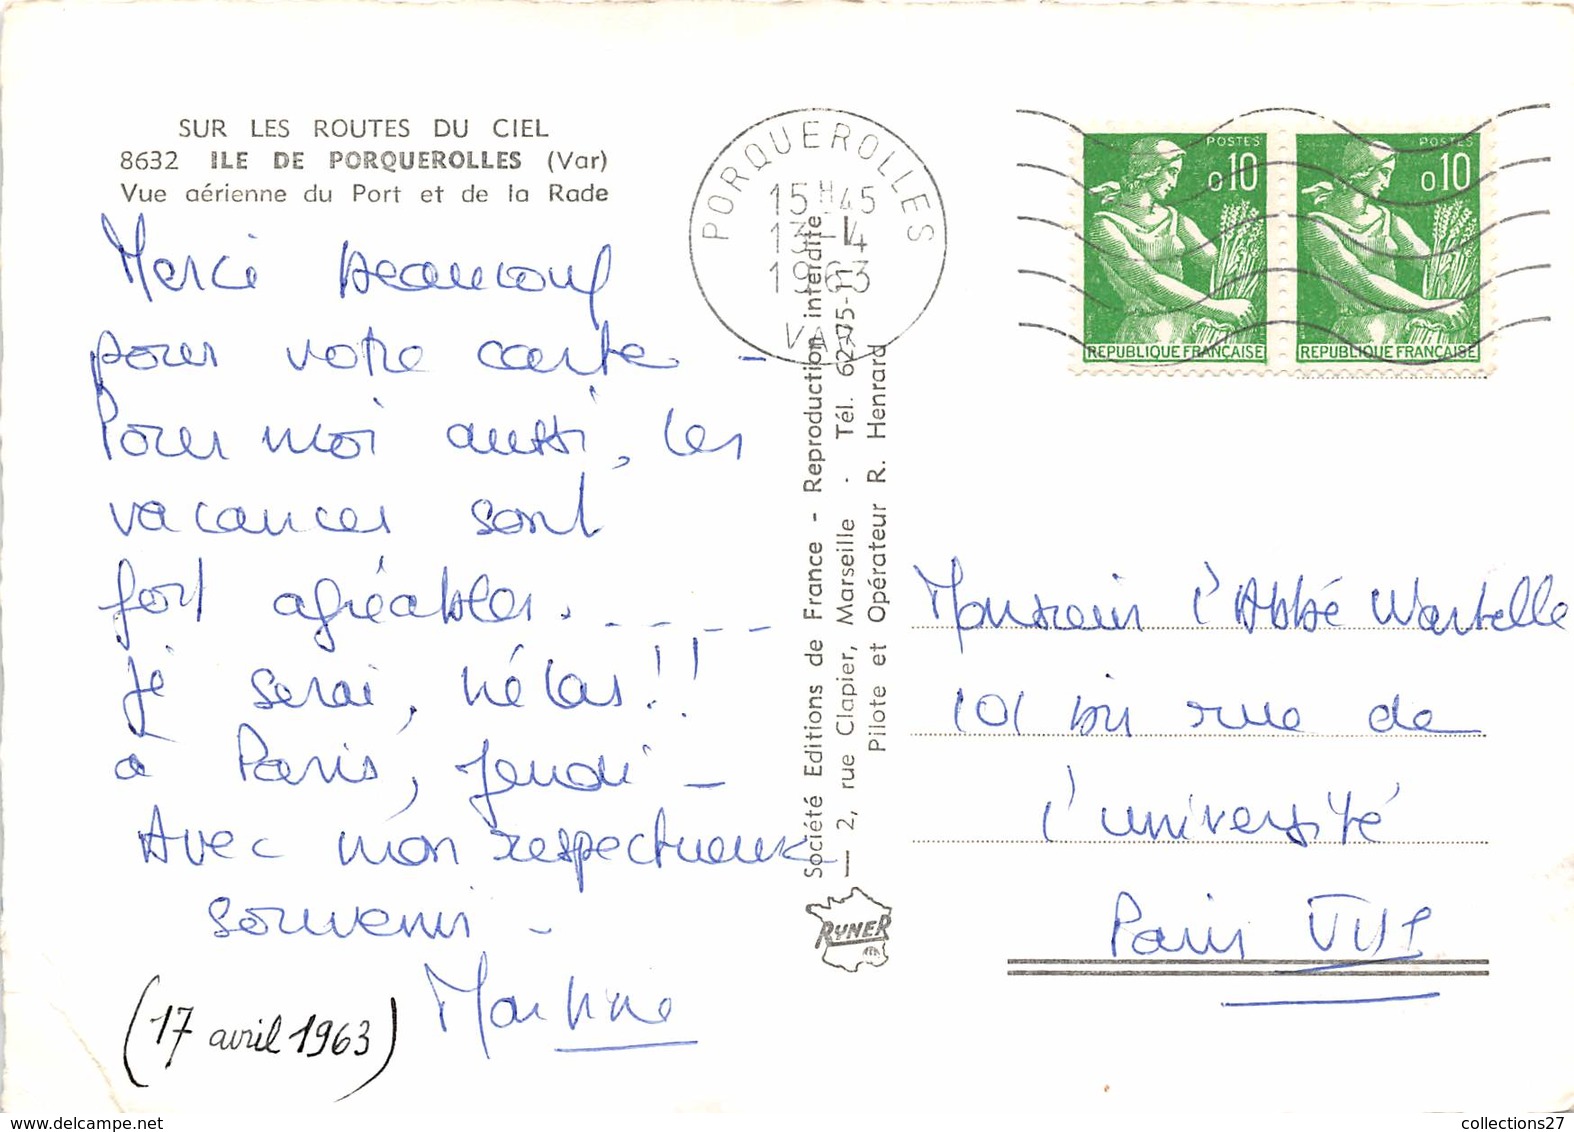 SUR LES ROUTES DU CIEL
8632 ILE DE PORQUEROLLES (Var)
Vue aérienne du Port et de la Rade
Merci beaucoup
pour votre carte -
Pour moi aussi, les
vacances sont
fort agréables. _ _ _ _
je serai, hélas!!
à Paris, jeudi -
Avec mon respectueux
souvenir -
Martine
(17 avril 1963)
PORQUEROLLES
15H45
13-4
1963
VAR
Société Editions de France - Reproduction interdite
— 2, rue Clapier, Marseille - Tél. 62-75-11
Pilote et Opérateur R. Henrard
RYNER
POSTES
0,10
REPUBLIQUE FRANÇAISE
POSTES
0,10
REPUBLIQUE FRANÇAISE
Monsieur l'Abbé Wartelle
101 bis rue de
l'université
Paris VII
collections27
www.delcampe.net